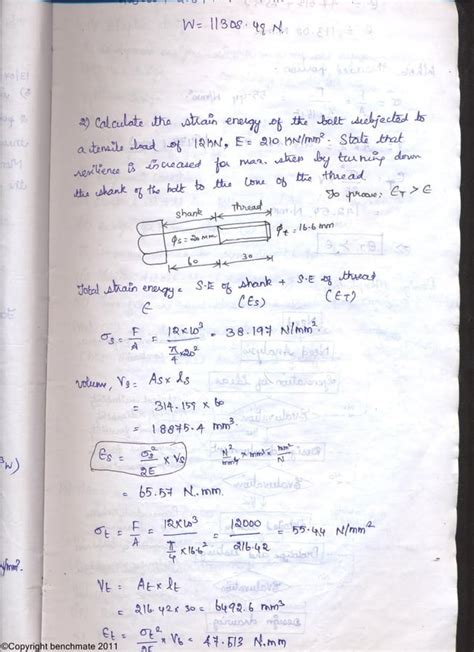 W = 11308.49 N
2) Calculate the strain energy of the bolt subjected to
a tensile load of 12KN, E = 210 KN/mm². State that
resilience is increased for max. stress by turning down
the shank of the bolt to the core of the thread.
To prove: E_T > E
shank thread
ϕs = 20mm ϕt = 16.6mm
60 30
Total strain energy = S.E of shank + S.E of thread
E (Es) (ET)
σs = F/A = 12×10³ / (π/4 × 20²) = 38.197 N/mm²
volume, Vs = As × ls
= 314.159 × 60
= 18875.4 mm³
Es = σs²/2E × Vs N²/mm⁴ × mm³ × mm²/N
= 65.57 N.mm
σt = F/A = 12×10³ / (π/4 × 16.6²) = 12000/216.42 = 55.44 N/mm²
Vt = At × lt
= 216.42 × 30 = 6492.6 mm³
Et = σt²/2E × Vt = 47.513 N.mm
©Copyright benchmate 2011